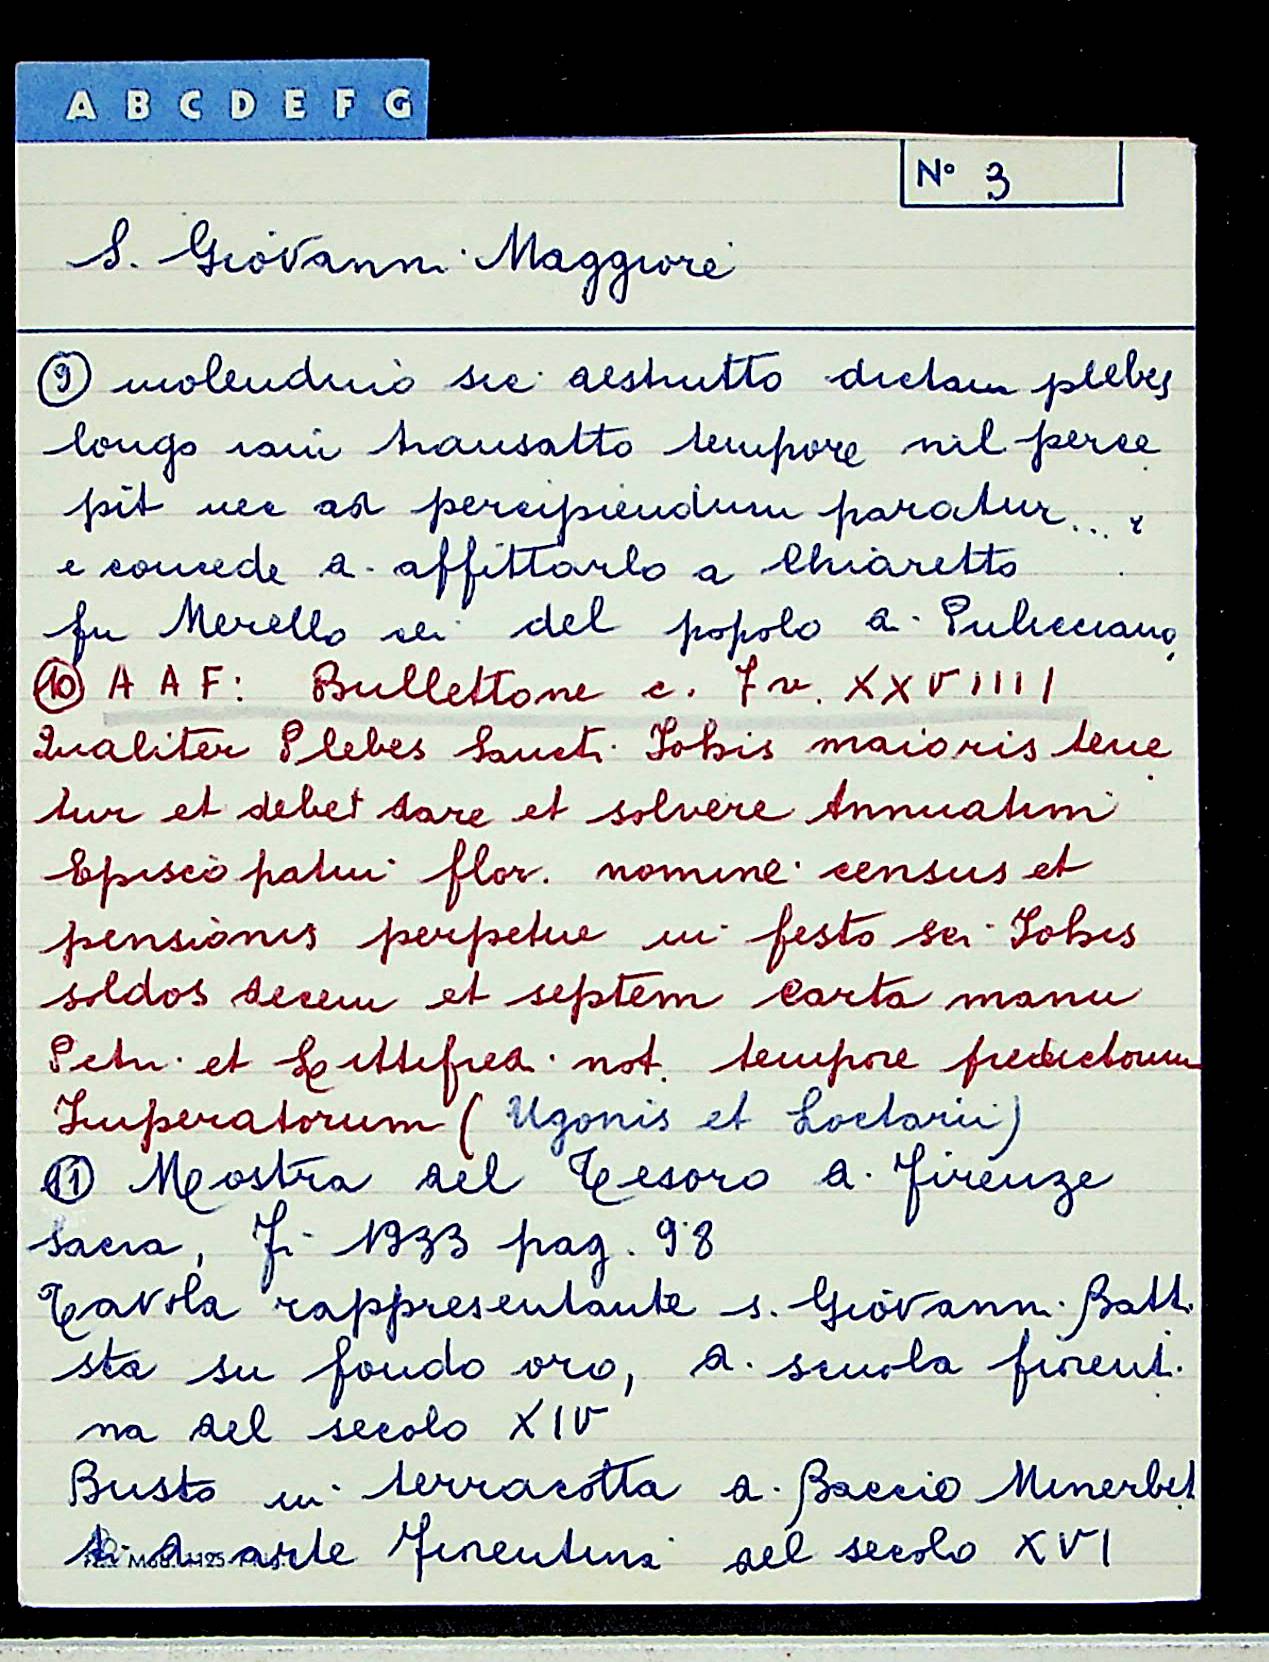 A B C D E F G
N° 3
S. Giovanni Maggiore
⑨ molendino sic destrutto dictam plebes
longo iam transatto tempore nil perce
pit nec ad percipiendum paratur...
e concede di affittarlo a Chiaretto
fu Merello del popolo di Pulicciano
⑩ A A F: Bullettone c. 7 v. XXVIIII
Qualiter Plebes Sancti Johis maioris tene
tur et debet dare et solvere Annuatim
Episcopatui flor. nomine census et
pensionis perpetue in festo sci Johis
soldos decem et septem carta manu
Petri et Littifredi not. tempore predictorum
Imperatorum (Ugonis et Loctarii)
⑪ Mostra del Tesoro di Firenze
sacra, Fi 1933 pag. 98
Tavola rappresentante s. Giovanni Batti
sta su fondo oro, di scuola fiorenti
na del secolo XIV
Busto in terracotta di Baccio Minerbet
ti di arte Fiorentina del secolo XVI